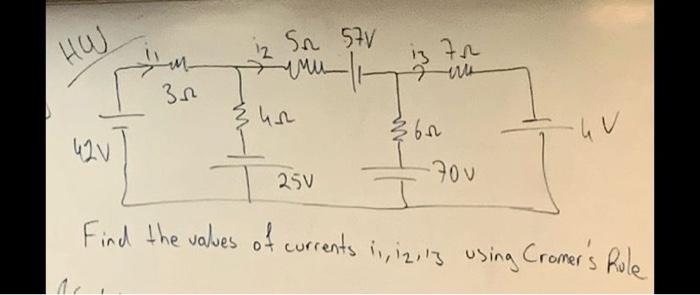 HW
i1 i2 5Ω 57V i3 7Ω
3Ω
4Ω 6Ω 4V
42V
25V 70V
Find the values of currents i1, i2, i3 using Cramer's Rule